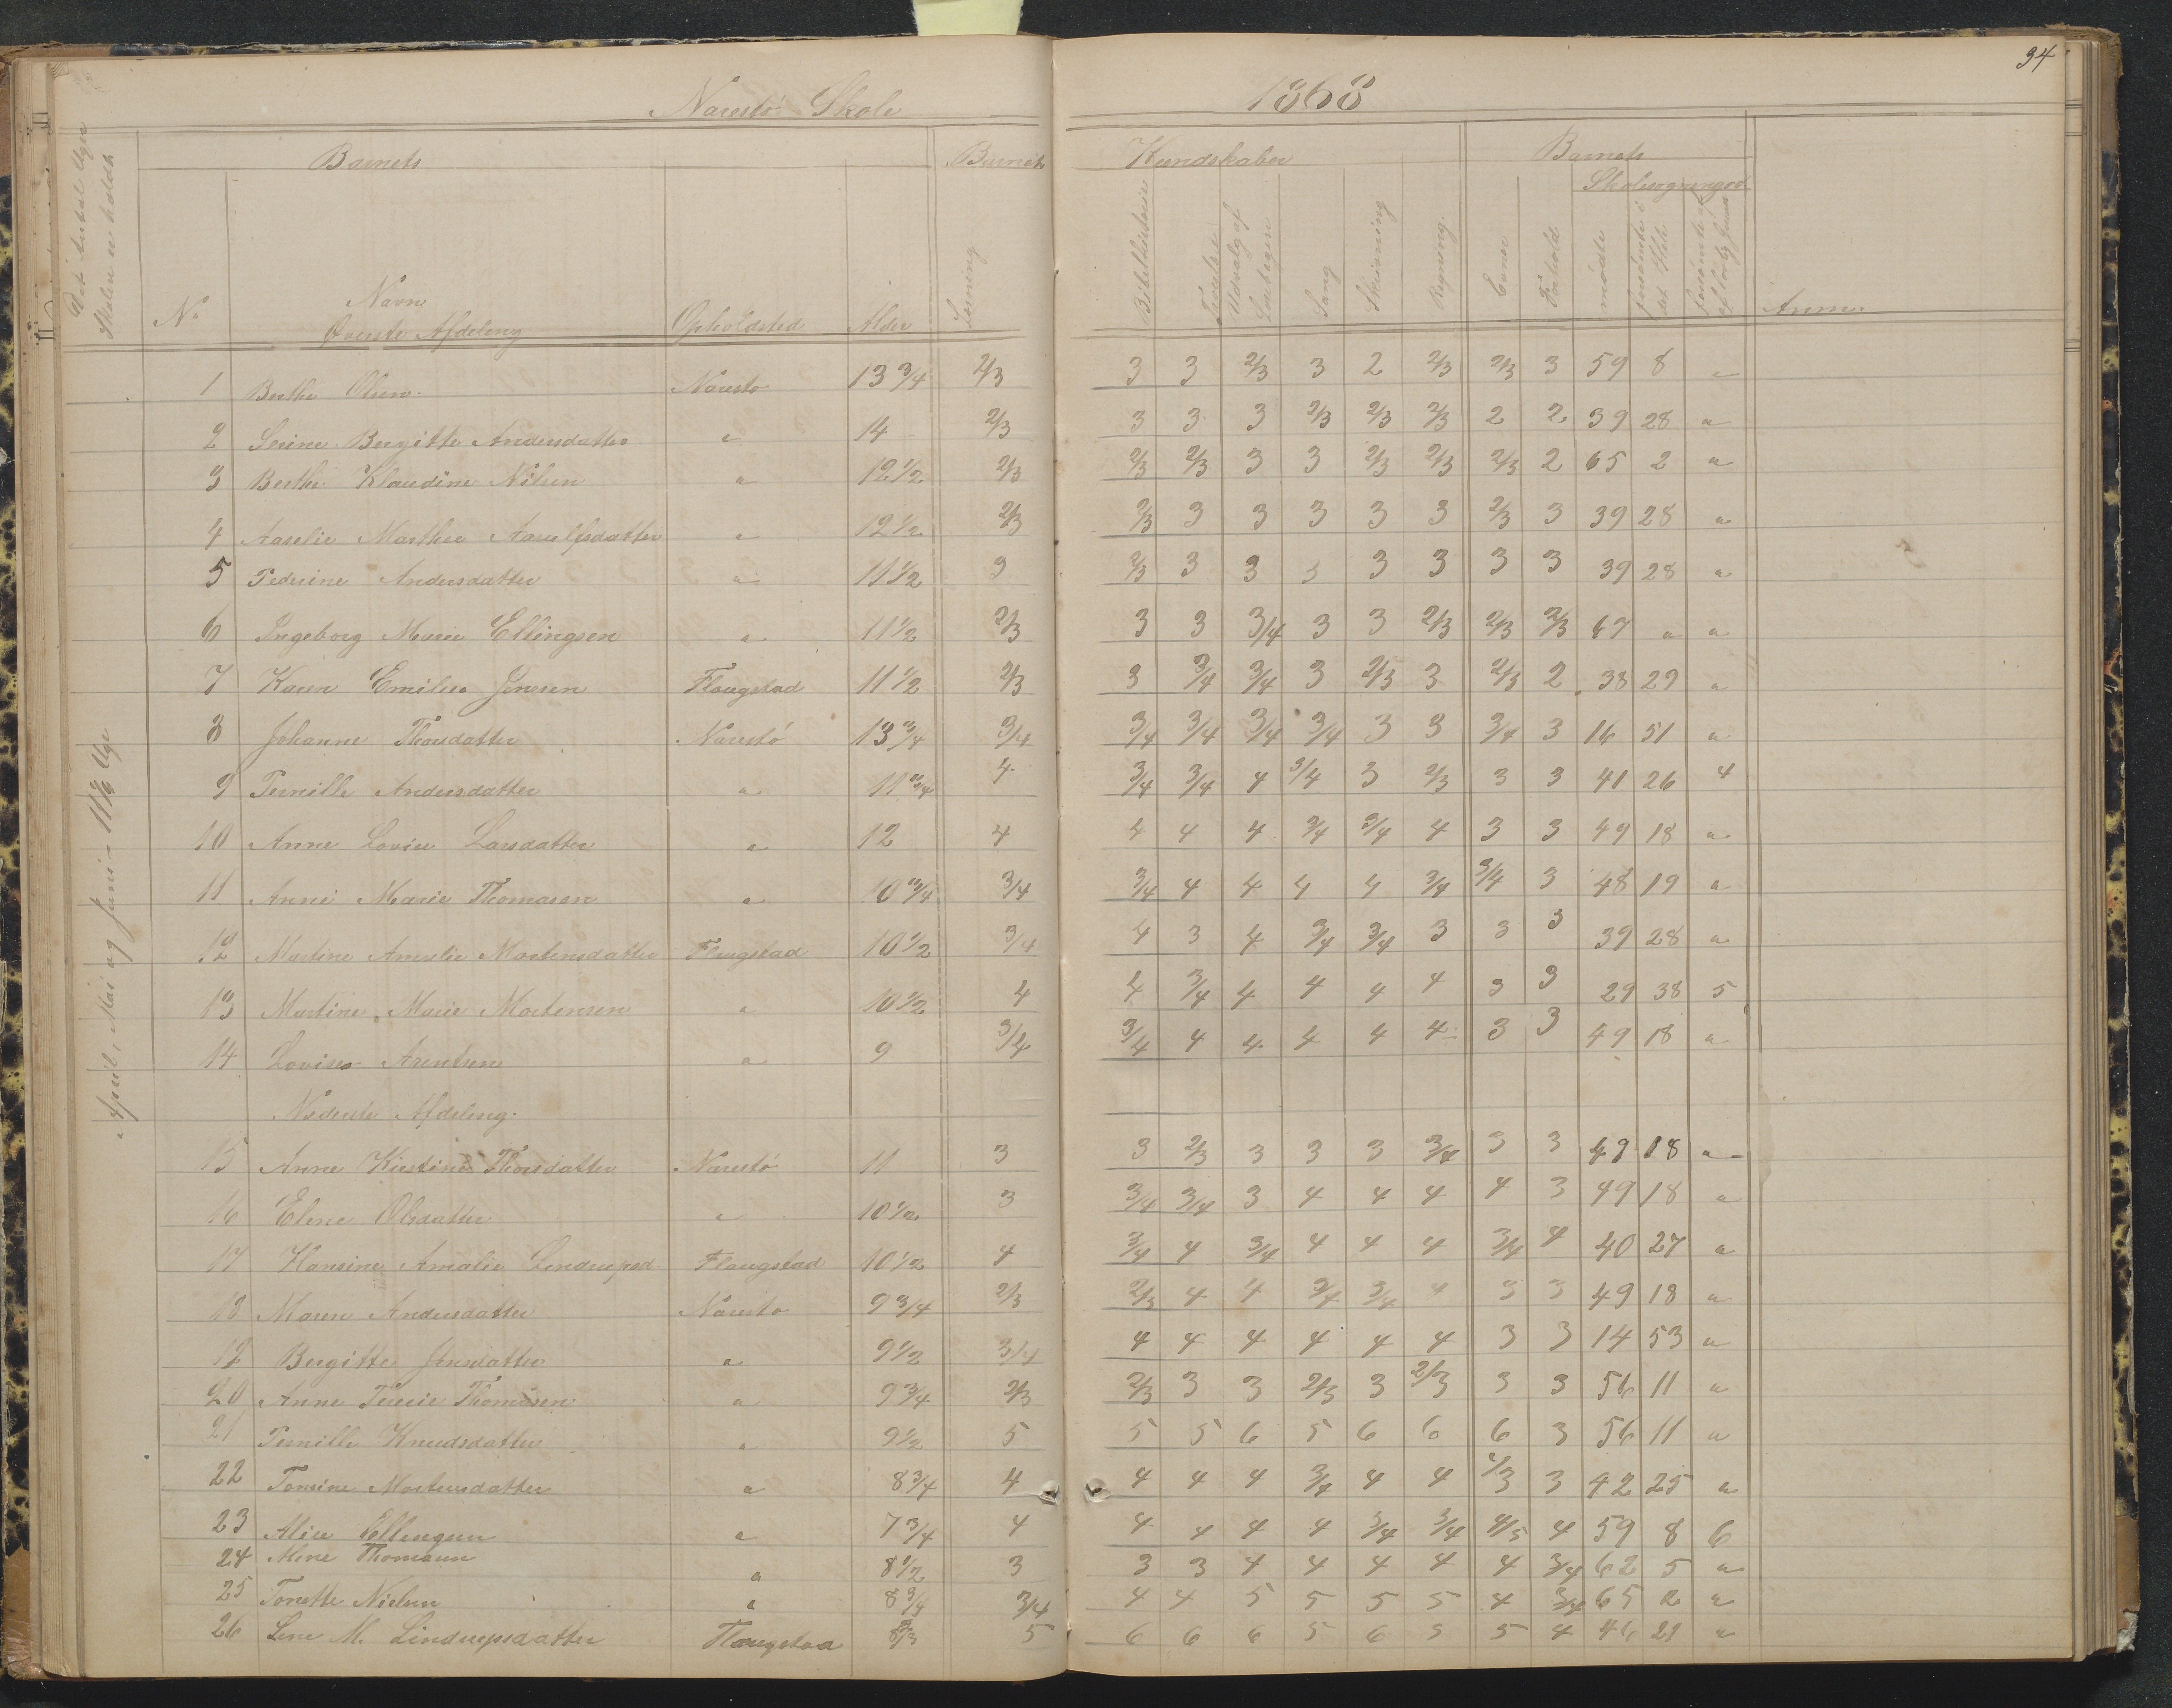 34
Narestö Skole 1868
Det Antal Uger Skolen er holdt
Barnets
Barnets Kundskaber
Barnets
Skolesøgningen
No Navn Opholdsted Alder Læsning Bibelhistorie Udvalg af Læsebogen Sang Skrivning Regning Evner Forhold mødte forsömte i det Hele forsömte af lovlig Grund Anm.
Øverste Afdeling
April, Mai og Juni - 11 1/6 Uge
1 Berthe Olsen Narestö 13 3/4 2/3 3 3 2/3 3 2 2/3 2/3 3 59 8 "
2 Serine Bergitte Andersdatter " 14 2/3 3 3 3 2/3 2/3 2/3 2 2 39 28 "
3 Berthe Klaudine Nilsen " 12 1/2 2/3 2/3 2/3 3 3 2/3 2/3 2/3 2 65 2 "
4 Aaselie Marthea Aanelfsdatter " 12 1/2 2/3 2/3 3 3 3 3 3 2/3 3 39 28 "
5 Pederine Andersdatter " 11 1/2 3 2/3 3 3 3 3 3 3 3 39 28 "
6 Ingeborg Marie Ellingsen " 11 1/2 2/3 3 3 3/4 3 3 2/3 2/3 2/3 67 " "
7 Karen Emilie Jensen Flangstad 11 1/2 2/3 3 3/4 3/4 3 2/3 3 2/3 2 38 29 "
8 Johanne Thorsdatter Narestö 13 3/4 3/4 3/4 3/4 3/4 3/4 3 3 3/4 3 16 51 "
9 Pernille Andersdatter " 11 3/4 4 3/4 3/4 4 3/4 3 2/3 3 3 41 26 4
10 Anne Lovise Larsdatter " 12 4 4 4 4 3/4 3/4 4 3 3 49 18 "
11 Anne Marie Thomasen " 10 3/4 3/4 3/4 4 4 4 4 3/4 3/4 3 48 19 "
12 Martine Amalie Mortensdatter Flangstad 10 1/2 3/4 4 3 4 3/4 3/4 3 3 3 39 28 "
13 Martine Marie Mortensen " 10 1/2 4 4 3/4 4 4 4 4 3 3 29 38 5
14 Lovise Arentsen " 9 3/4 3/4 4 4 4 4 4 3 3 49 18 "
Nederste Afdeling.
15 Anne Kirstine Thorsdatter Narestö 11 3 3 2/3 3 3 3 3/4 3 3 49 18 "
16 Elene Olsdatter " 10 1/2 3 3/4 3/4 3 4 4 4 4 3 49 18 "
17 Hansine Amalie Lindrupsd Flangstad 10 1/2 4 3/4 4 3/4 4 4 4 3/4 4 40 27 "
18 Maren Andersdatter Narestö 9 3/4 2/3 2/3 4 4 3/4 3/4 4 3 3 49 18 "
19 Bergitte Jensdatter " 9 1/2 3/4 4 4 4 4 4 4 3 3 14 53 "
20 Anne Terese Thomasen " 9 3/4 2/3 2/3 3 3 2/3 3 2/3 3 3 56 11 "
21 Pernille Knudsdatter " 9 1/2 5 5 5 6 5 6 6 6 3 56 11 "
22 Tomine Mortensdatter " 8 3/4 4 4 4 4 3/4 4 4 2/3 3 42 25 "
23 Alise Ellingsen " 7 3/4 4 4 4 4 4 3/4 3/4 4/5 4 59 8 6
24 Mine Thomasen " 8 1/2 3 3 3 4 4 4 4 4 3/4 62 5 "
25 Tonette Nielsen " 8 3/4 3/4 4 4 5 5 5 5 4 3/4 65 2 "
26 Lene M. Lindrupsdatter Flangstad 5 6 6 6 5 6 5 5 4 46 21 "